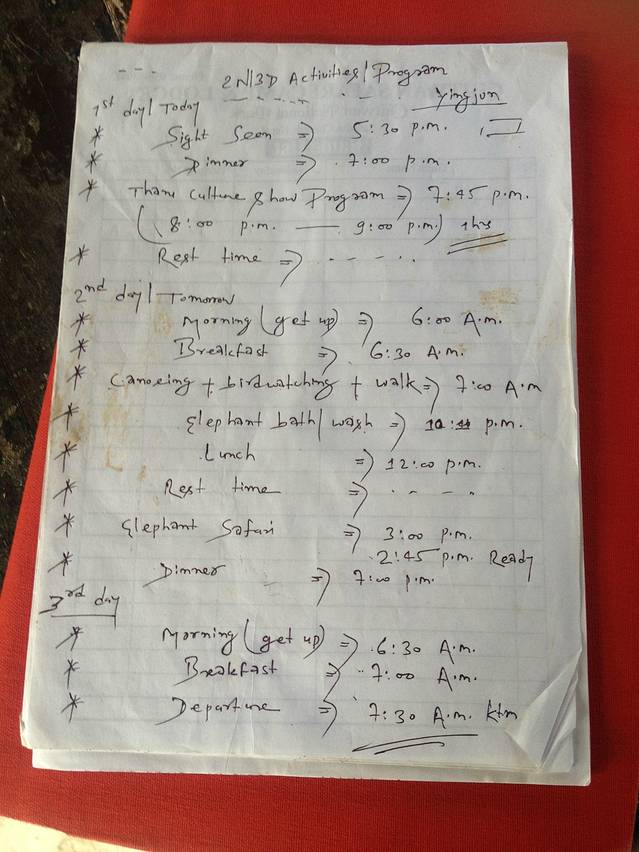 2N/3D Activities/Program
Yingjun
1st day/Today
* Sight Seen => 5:30 p.m.
* Dinner => 7:00 p.m.
* Tharu Culture Show Program => 7:45 p.m.
(8:00 p.m. — 9:00 p.m.) 1hrs
* Rest time => - - - . .
2nd day/Tomorrow
* Morning (get up) => 6:00 A.m.
* Breakfast => 6:30 A.m.
* Canoeing + birdwatching + walk => 7:00 A.m
* Elephant bath/wash => p.m.
* Lunch => 12:00 p.m.
* Rest time => . - - -
* Elephant Safari => 3:00 p.m.
2:45 p.m. Ready
* Dinner => 7:00 p.m.
3rd day
* Morning (get up) => 6:30 A.m.
* Breakfast => 7:00 A.m.
* Departure => 7:30 A.m. ktm